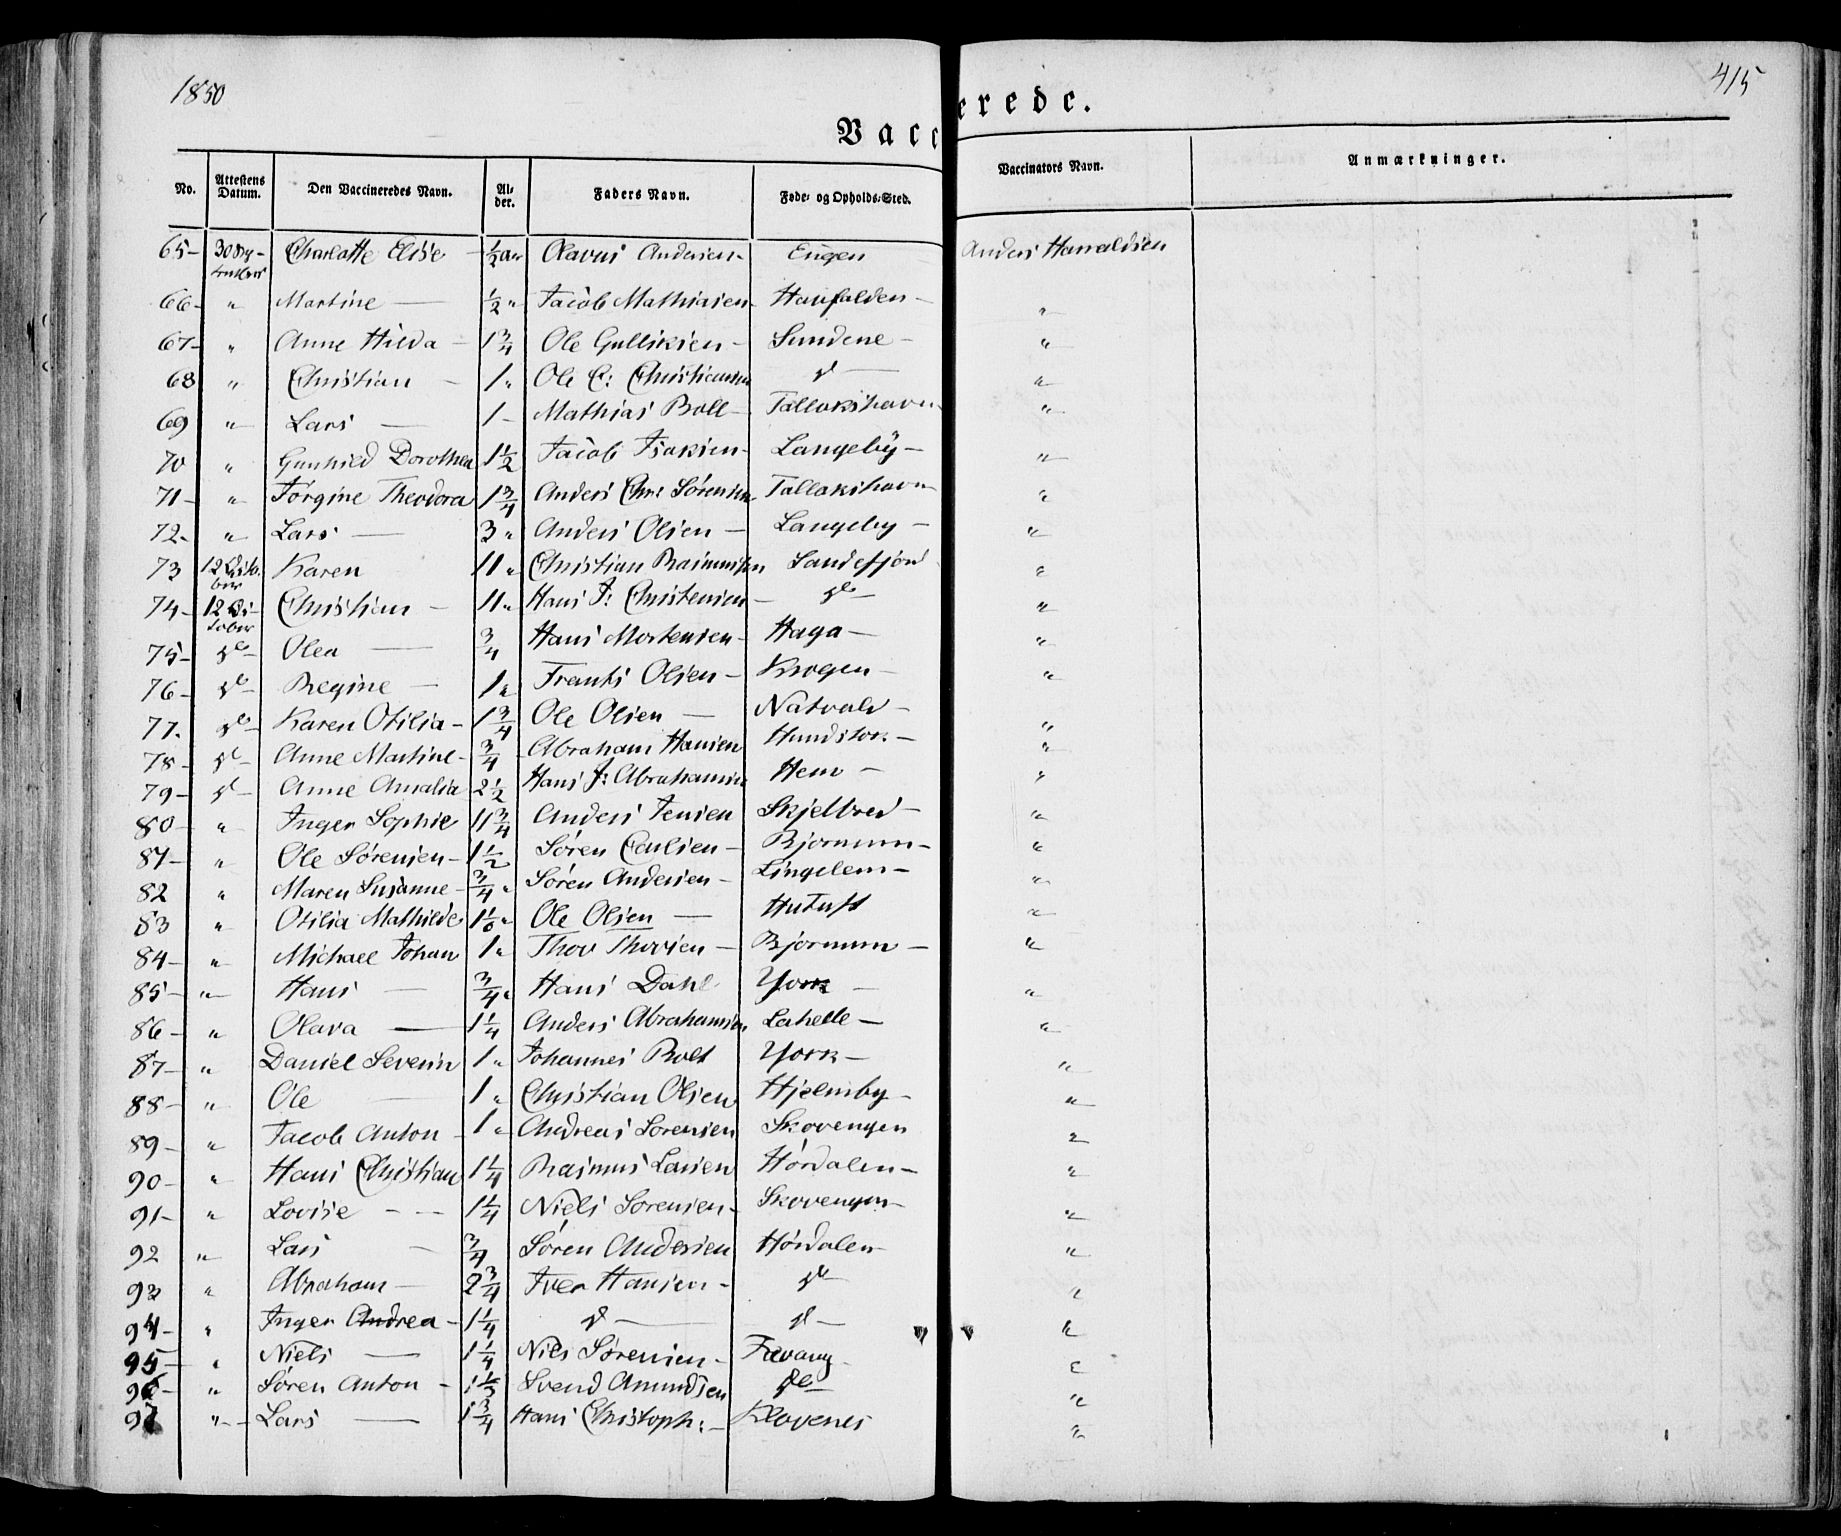 1850
415
Vacc erede.
No. Attestens Datum. Den Vaccineredes Navn. Al-der. Faders Navn. Føde- og Opholds-Sted. Vaccinators Navn. Anmærkninger.
65- Charlotte Elise - 1/2 aar Olavus Andersen- Engen Anders Harraldsen
66- " Martine - 1/2 " Jacob Mathiasen- - "
67- " Anne Hilda - 1 3/4 Ole Gulliksen- Sundene - "
68 " Christian - 1 " Ole C: Christiansen do - "
69 " Lars - 1 - Mathias Boll- Tallakshavn "
70 " Gunhild Dorothea 1 1/2 Jacob Isaksen- Langeby - "
71- " Torgine Theodora 1 3/4 Anders Chr: Sørensen Tallakshavn "
72- " Lars - 3 " Anders Olsen - Langeby - "
73 12 Octo-ber Karen 11 " Christian Rasmussen Sandefjord "
74- 12 Oc-tober Christian - 11 " Hans J: Christensen- do- "
75- do- Olea - 3/4 Hans Mortensen- Haga- "
76- do- Regine - 1 " Frants Olsen - Krogen - "
77. do- Karen Otilia- 1 3/4 Ole Olsen - Natvald - "
78- do- Anne Martine- 3/4 Abraham Hansen Hundstok - "
79- do- Anne Amalia 2 1/2 Hans J: Abrahamsen Hem - "
80- " Inger Sophie 11 3/4 Anders Jensen Skjelbred - "
81- " Ole Sørensen- 1 1/2 Søren Paulsen - Bjornum - "
82 " Maren Susanne - 3/4 " Søren Andersen - Lingelem - "
83 " Otilia Mathilde Ole Olsen - "
84- " Michael Johan 1 " Thor Thorsen - Bjornum - "
85- " Hans - 3/4 " Hans Dahl York - "
86- " Olava - 1 1/4 Anders Abrahamsen Lahelle - "
87- " Daniel Severin 1 " Johannes York - "
88- " Ole - 1 " Christian Olsen Hjelmby - "
89- " Jacob Anton - 1 " Andreas Sorensen Skovengen "
90- " Hans Christian 1 1/4 Rasmus Larsen Hørdalen - "
91- " Lovise - - 1 1/4 Niels Sorensen - Skovengen - "
92 " Lars - 3/4 Søren Andersen Hørdalen- "
93- " Abraham - 2 3/4 Iver Hansen - do- "
94- " Inger Andrea - 1 1/4 do - do - "
95- " Niels - 1 1/4 Nils Sørensen - "
96- " Søren Anton - Svend Amundsen do- "
97 " - Lars - 1 3/4 Hans Christoph: - Klavenes "